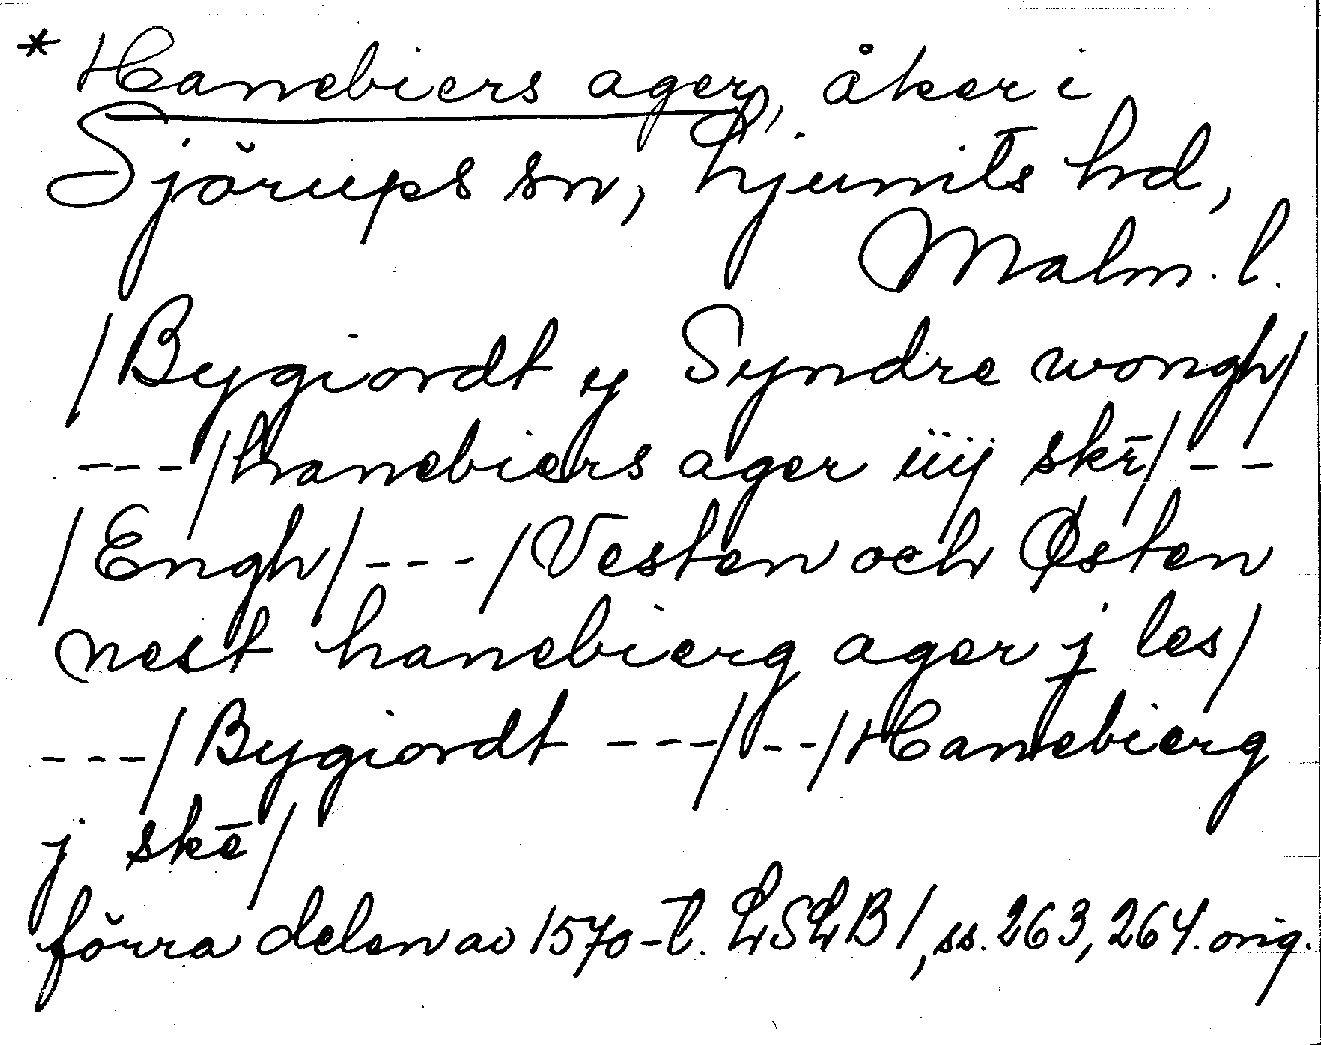 * Hanebiers ager, åker i
Sjörups sn, Ljunits hd,
Malm. l.
/Bygiordt y Syndre wongh/
---/hanebiers ager iiij skr̄/--
/Engh/---/Vesten och Østen
nest hanebierg ager j les/
---/Bygiordt ---/--/Hanebierg
j skē/
förra delen av 1570-t. LSLB1, ss. 263, 264. orig.